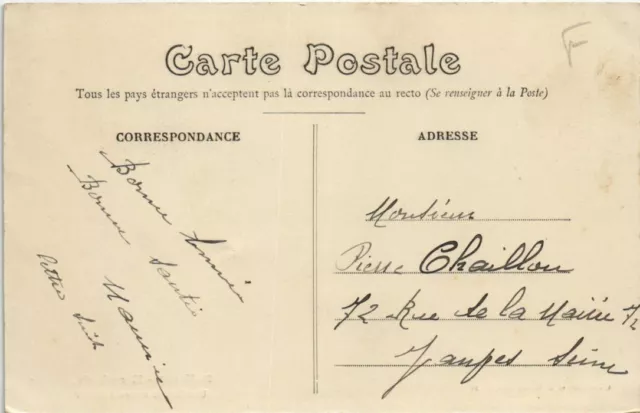 F
Carte Postale
Tous les pays étrangers n'acceptent pas là correspondance au recto (Se renseigner à la Poste)
CORRESPONDANCE
Bonne Année
Bonne Santée
Maurice
ADRESSE
Monsieur
Pierre Chaillou
72 Rue de la Mairie 72
Seine